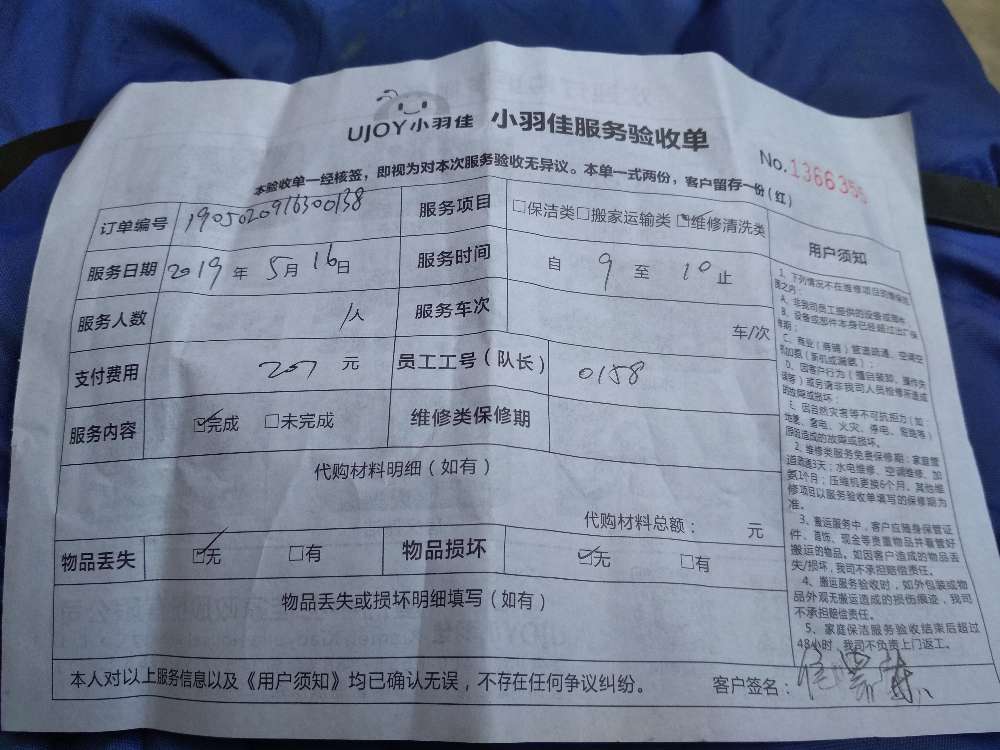 UJOY小羽佳 小羽佳服务验收单
No.1366355
本验收单一经核签，即视为对本次服务验收无异议。本单一式两份，客户留存一份（红）
订单编号 1905020916300138 服务项目 □保洁类□搬家运输类☑维修清洗类
服务日期 2019年5月16日 服务时间 自 9 至 10 止
服务人数 /人 服务车次 车/次
支付费用 207 元 员工工号（队长） 0158
服务内容 ☑完成 □未完成 维修类保修期
代购材料明细（如有）
代购材料总额： 元
物品丢失 ☑无 □有 物品损坏 ☑无 □有
物品丢失或损坏明细填写（如有）
本人对以上服务信息以及《用户须知》均已确认无误，不存在任何争议纠纷。 客户签名：
用户须知
1、下列情况不在维修项目的维保范
围之内：
A、非我司员工提供的设备或部件
B、设备或部件本身已经超过出厂保
修期；
C、商业（商铺）管道疏通、空调空
D、因客户行为（擅自装卸、操作失
误等）或另请非我司人员检修所造成
的故障或损坏；
E、因自然灾害等不可抗拒力（如：
地震、雷电、火灾、停电、宕窃等）
原因造成的故障或损坏。
2、维修类服务免费保修期：家庭管
道疏通3天；水电维修、空调维修、加
氨1个月；压缩机更换6个月。其他维
修项目以服务验收单填写的保修期为
准。
3、搬运服务中，客户应随身保管证
件、首饰、现金等贵重物品并看管好
搬运的物品。如因客户造成的物品丢
失/损坏，我司不承担赔偿责任。
4、搬运服务验收时，如外包装或物
品外观无搬运造成的损伤痕迹，我司
不承担赔偿责任。
5、家庭保洁服务验收结束后超过
48小时，我司不负责上门返工。